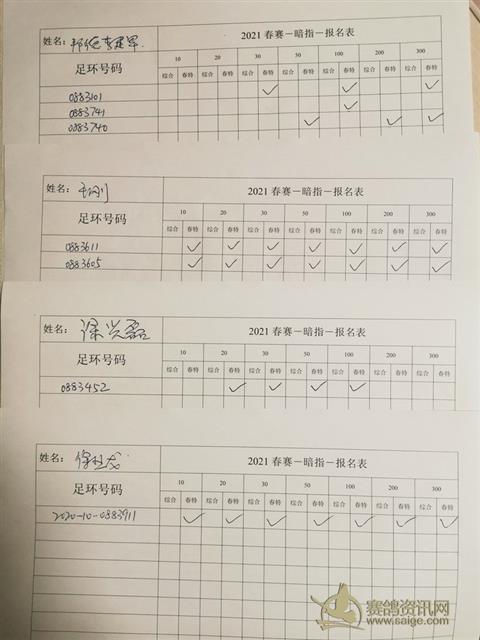 姓名: 李建军 2021 春赛－暗指－报名表
足环号码 10 20 30 50 100 200 300
综合 春特 综合 春特 综合 春特 综合 春特 综合 春特 综合 春特 综合 春特
0883101 ✓ ✓ ✓
0883741 ✓
0883740 ✓ ✓ ✓
姓名: 2021 春赛－暗指－报名表
足环号码 10 20 30 50 100 200 300
综合 春特 综合 春特 综合 春特 综合 春特 综合 春特 综合 春特 综合 春特
0883611 ✓ ✓ ✓ ✓ ✓ ✓ ✓
0883605 ✓ ✓ ✓ ✓ ✓ ✓ ✓
姓名: 徐兴磊 2021 春赛－暗指－报名表
足环号码 10 20 30 50 100 200 300
综合 春特 综合 春特 综合 春特 综合 春特 综合 春特 综合 春特 综合 春特
0883452 ✓ ✓ ✓ ✓
姓名: 2021 春赛－暗指－报名表
足环号码 10 20 30 50 100 200 300
综合 春特 综合 春特 综合 春特 综合 春特 综合 春特 综合 春特 综合 春特
2020-10-0883911 ✓ ✓ ✓ ✓ ✓ ✓ ✓
赛鸽资讯网
www.saige.com